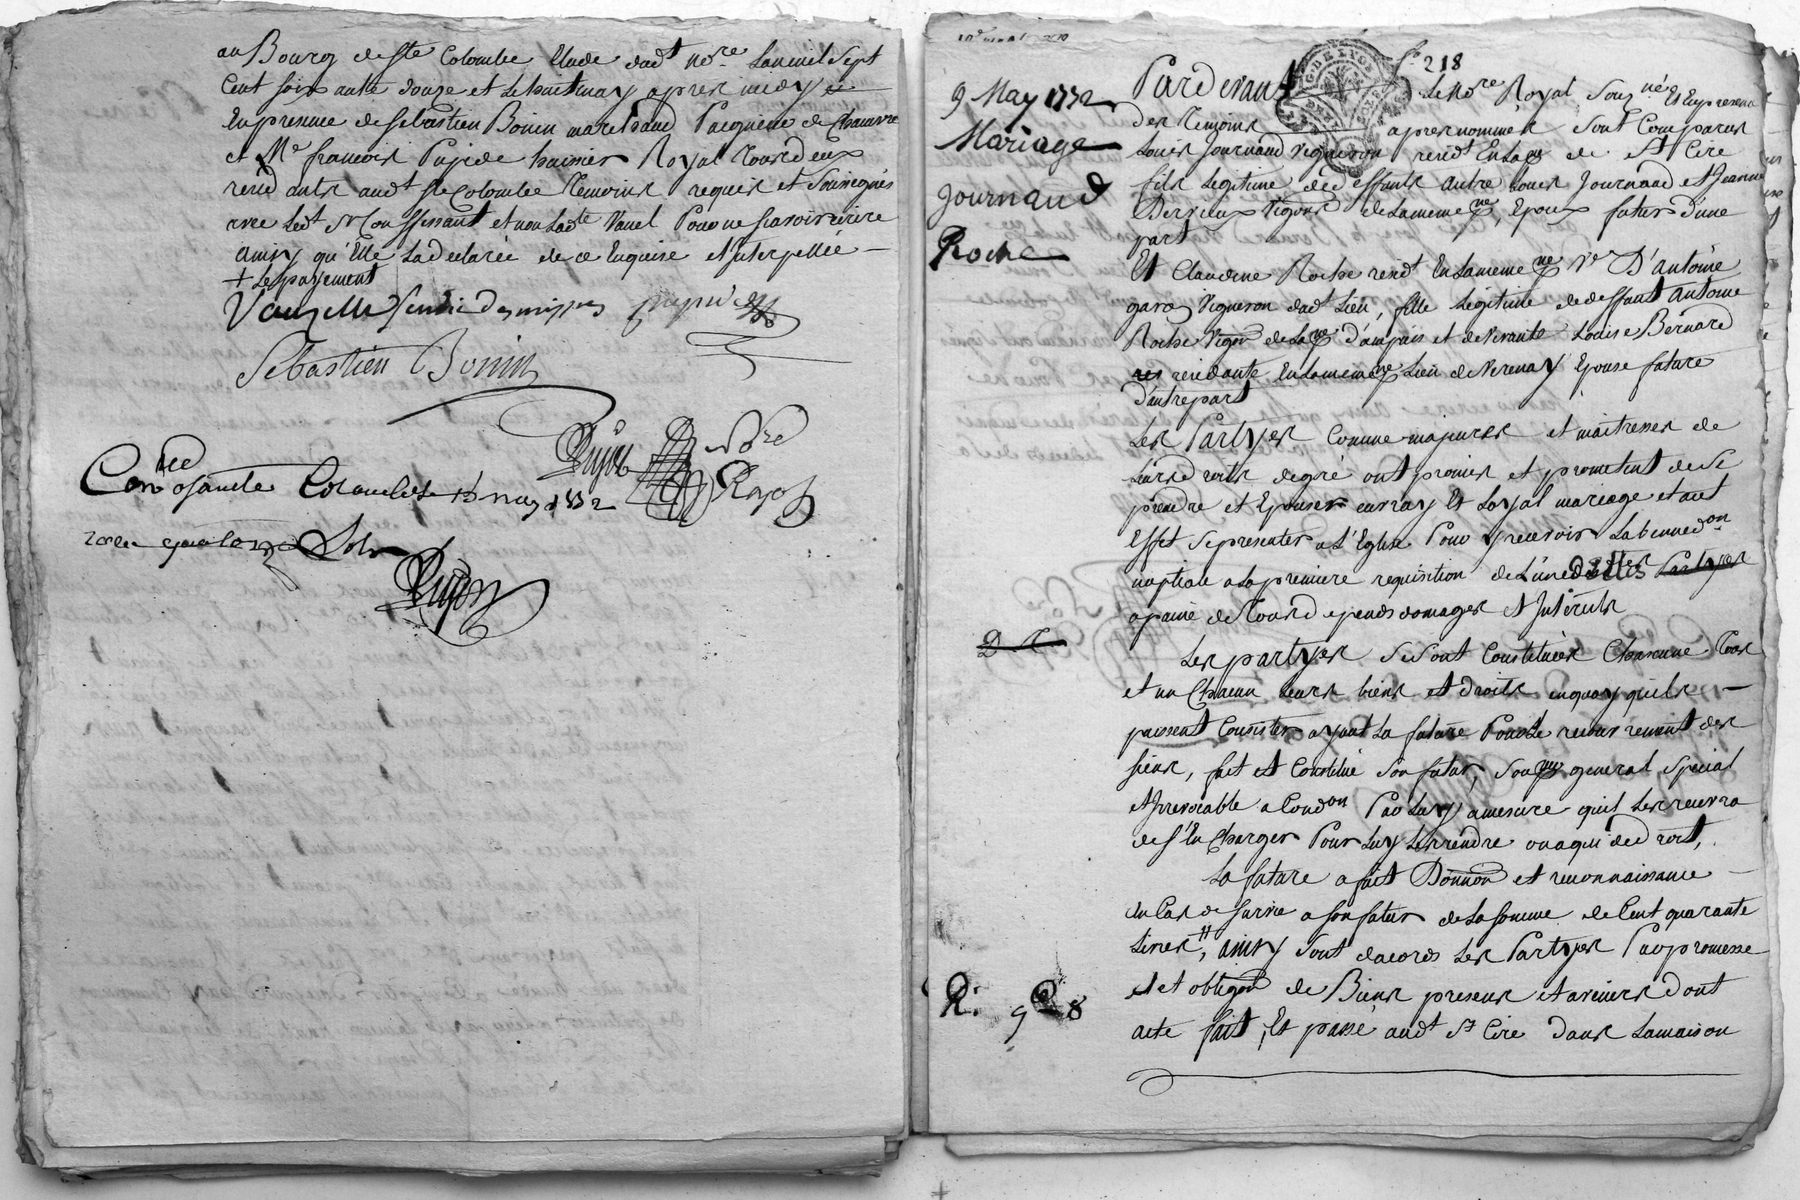 au Bourg de Ste Colombe Etude dudt nore. Lan mil Sept
Cent soixante douze et Le huit may apres midy et
En presence de Sebastien Bonin marchand
et Me francois huissier Royal tous deux
resid ants audt Ste Colombe temoins requis et Soussignés
avec Ledt Sr et non Ladte Vanel Pour ne scavoir écrire
ainsy qu'Elle La declarée de ce Enquise et interpellée
+ Le payement
Sebastien Bonin
nore
Royal
Conlee a Sainte Colombe 15 may 1772
sols
fo 218
9 May 1772
Mariage
Journaud
Roche
Pardevant Le Nore Royal Souzné Et En presence
des temoins apres nommés Sont Comparus
Louis Journaud vigneron residt En La pse de St Cire
fils Legitime de deffunts autre Louis Journaud et Jeanne
Dervieux vignons de La meme pse, Epoux futur d'une
part
Et Claudine Roche residt En La meme pse Ve D'antoine
garon vigneron dudt Lieu, fille Legitime de deffunt Antoine
Roche vigon de La pse d'ampuis et de vivante Louise Bernard
residante En La meme pse Lieu de Verenay Epouse future
d'autre part
Les Partyes Comme majeures et maitresses de
Leurs droits de gré ont promis et promettent de Se
prendre et Epouser en vray Et Loyal mariage et aut
Effet Se presenter a L'Eglise Pour y recevoir La benneden
nuptiale a La premiere requisition de L'une Partyes
a peine de tous depends domages Et Interets
Les partyes Se sont Constitués Chacune tous
et un Chacun Leurs biens et droits en quoy qu'ils
puissent Consister ayant La future Pour Le recouvrement des
siens, fait et Constitué Son futur, Son pr general special
et Irrevocable a Condon Par Luy a mesure qu'il Les recevra
de s'En Charger Pour Luy Les rendre ou a qui de droit,
La future a fait Donnon et reconnaissance
En Cas de survie a son futur de La somme de Cent quarante
Livres, ainsy Sont dacords Les Partyes Par promesse
et obligon de Biens presens et avenirs dont
acte fait, Et passé audt St Cire Dans La maison